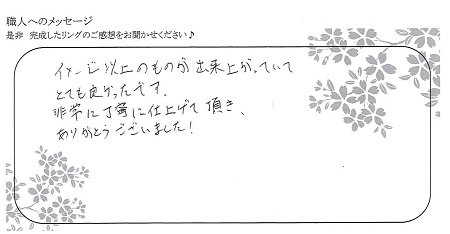 職人へのメッセージ
是非　完成したリングのご感想をお聞かせください♪
イメージ以上のものが出来上がっていて
とても良かったです。
非常に丁寧に仕上げて頂き、
ありがとうございました！